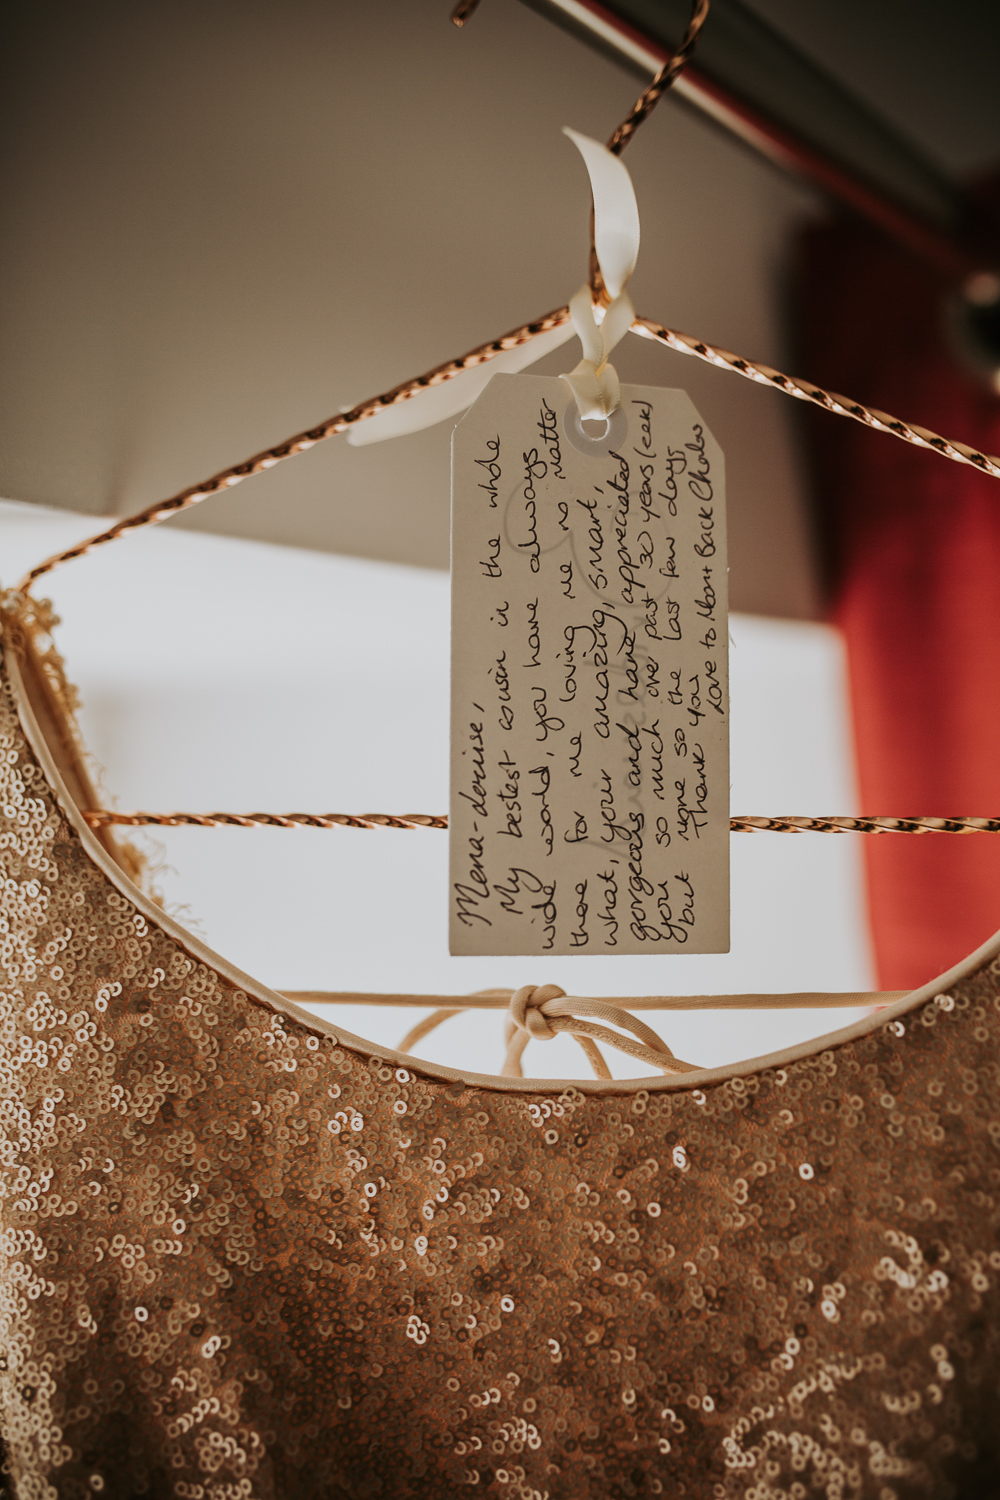 Mena-deruise,
My bestest cousin in the whole
wide world, you have always
there for me loving me no matter
what, your amazing, smart,
gorgeous and have appreciated
you so much over past 30 years (eek)
but more so the last few days
Thank you
Love to Moon + Back Chalo